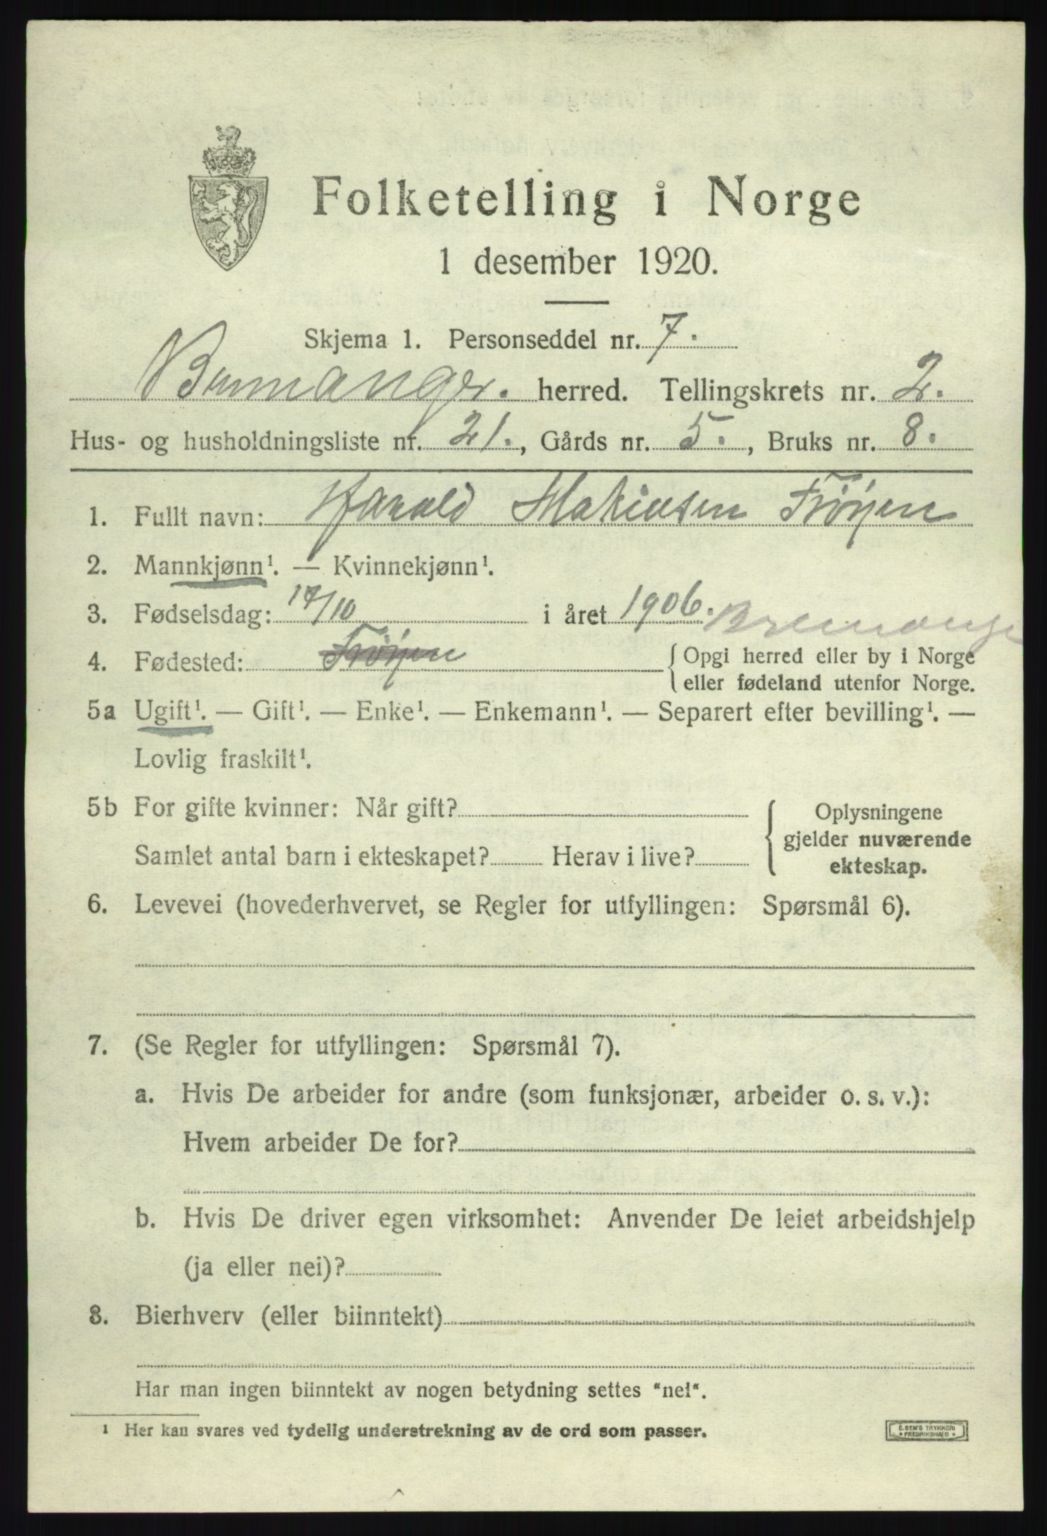 Folketelling i Norge
1 desember 1920.
Skjema 1. Personseddel nr. 7.
Bremanger. herred. Tellingskrets nr. 2.
Hus- og husholdningsliste nr. 21., Gårds nr. 5., Bruks nr. 8.
1. Fullt navn: Harald Matiasen Frøyen
2. Mannkjønn¹. — Kvinnekjønn¹.
3. Fødselsdag: 17/10 i året 1906. Bremanger
4. Fødested: Frøyen { Opgi herred eller by i Norge
eller fødeland utenfor Norge.
5a Ugift¹. — Gift¹. — Enke¹. — Enkemann¹. — Separert efter bevilling¹. —
Lovlig fraskilt¹.
5b For gifte kvinner: Når gift? { Oplysningene
gjelder nuværende
Samlet antal barn i ekteskapet? Herav i live? ekteskap.
6. Levevei (hovederhvervet, se Regler for utfyllingen: Spørsmål 6).
7. (Se Regler for utfyllingen: Spørsmål 7).
a. Hvis De arbeider for andre (som funksjonær, arbeider o. s. v.):
Hvem arbeider De for?
b. Hvis De driver egen virksomhet: Anvender De leiet arbeidshjelp
(ja eller nei)?
8. Bierhverv (eller biinntekt)
Har man ingen biinntekt av nogen betydning settes "nei".
¹ Her kan svares ved tydelig understrekning av de ord som passer.